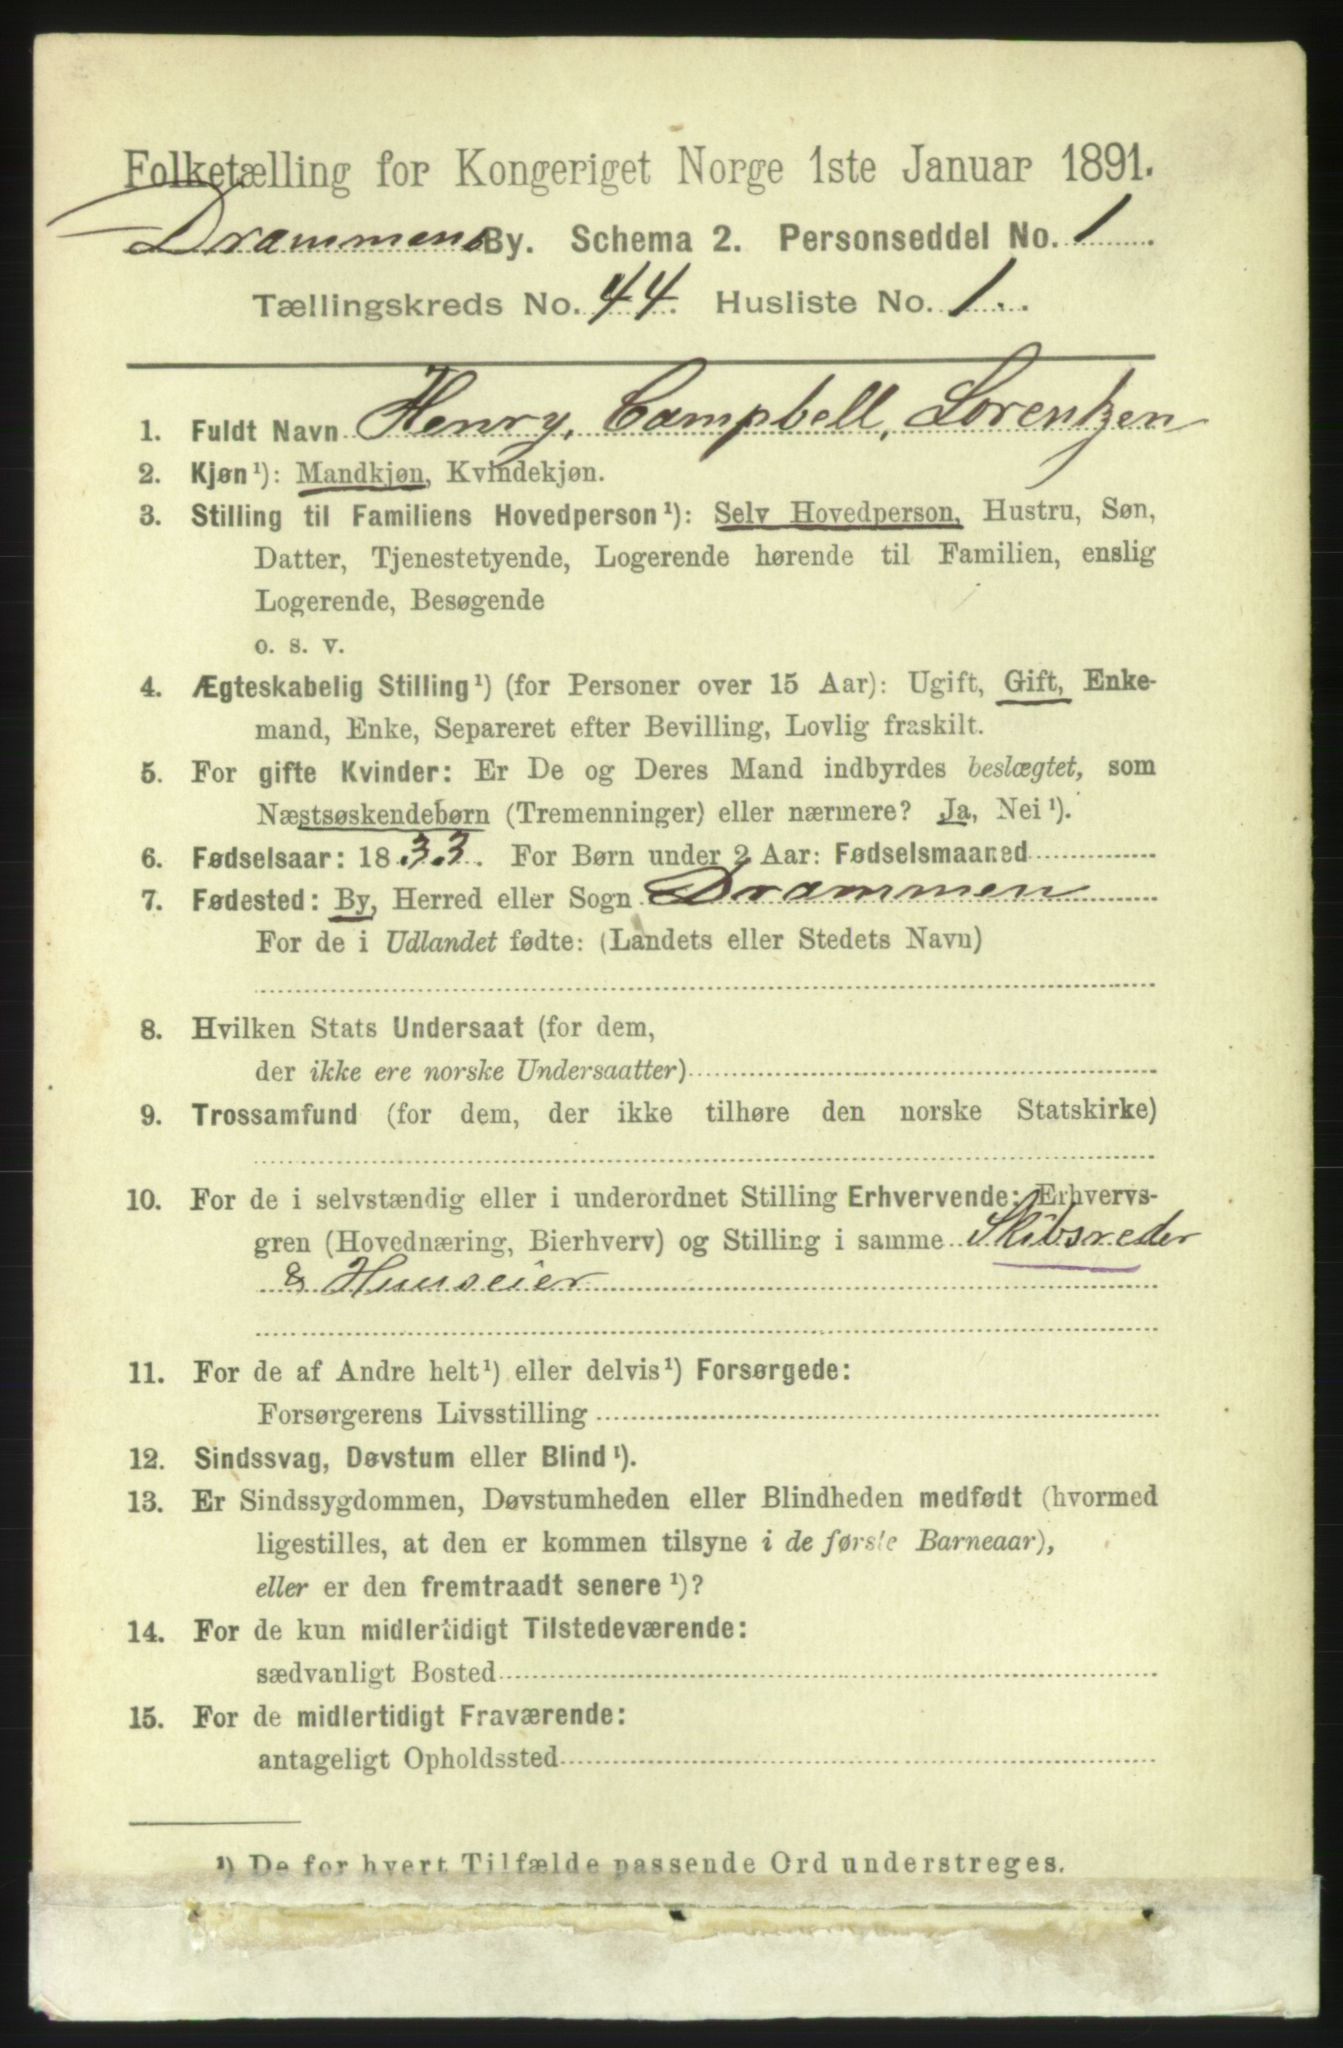 Folketælling for Kongeriget Norge 1ste Januar 1891.
Drammens By. Schema 2. Personseddel No. 1
Tællingskreds No. 44. Husliste No. 1.
1. Fuldt Navn Henry, Campbell, Lorentzen
2. Kjøn¹): Mandkjøn, Kvindekjøn.
3. Stilling til Familiens Hovedperson¹): Selv Hovedperson, Hustru, Søn,
Datter, Tjenestetyende, Logerende hørende til Familien, enslig
Logerende, Besøgende
o. s. v.
4. Ægteskabelig Stilling¹) (for Personer over 15 Aar): Ugift, Gift, Enke-
mand, Enke, Separeret efter Bevilling, Lovlig fraskilt.
5. For gifte Kvinder: Er De og Deres Mand indbyrdes beslægtet, som
Næstsøskendebørn (Tremenninger) eller nærmere? Ja, Nei¹).
6. Fødselsaar: 1833. For Børn under 2 Aar: Fødselsmaaned
7. Fødested: By, Herred eller Sogn Drammen
For de i Udlandet fødte: (Landets eller Stedets Navn)
8. Hvilken Stats Undersaat (for dem,
der ikke ere norske Undersaatter)
9. Trossamfund (for dem, der ikke tilhøre den norske Statskirke)
10. For de i selvstændig eller i underordnet Stilling Erhvervende: Erhvervs-
gren (Hovednæring, Bierhverv) og Stilling i samme Skibsreder
& Huuseier
11. For de af Andre helt¹) eller delvis¹) Forsørgede:
Forsørgerens Livsstilling
12. Sindssvag, Døvstum eller Blind¹).
13. Er Sindssygdommen, Døvstumheden eller Blindheden medfødt (hvormed
ligestilles, at den er kommen tilsyne i de første Barneaar),
eller er den fremtraadt senere¹)?
14. For de kun midlertidigt Tilstedeværende:
sædvanligt Bosted
15. For de midlertidigt Fraværende:
antageligt Opholdssted
¹) De for hvert Tilfælde passende Ord understreges.